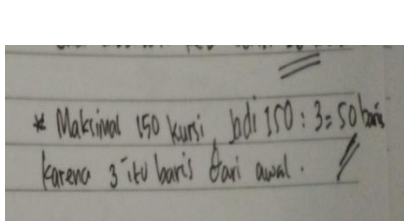 * Maksimal 150 kursi, jadi 150 : 3 = 50 baris
karena 3 itu baris dari awal.